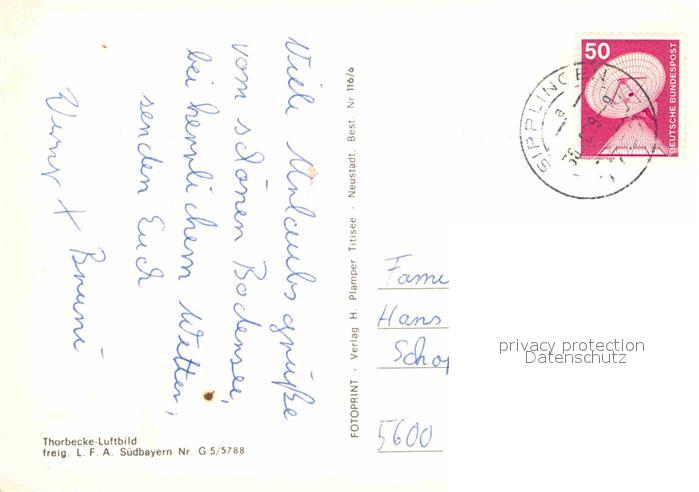 Viele Urlaubsgrüße
vom schönen Bodensee,
bei herrlichem Wetter,
senden Euch
+ Bruni
Thorbecke-Luftbild
freig. L. F. A. Südbayern Nr. G 5/5788
FOTOPRINT · Verlag H. Plamper Titisee · Neustadt. Best. Nr 116/6
50
DEUTSCHE BUNDESPOST
SIPPLINGEN
a
Hans
5600
privacy protection
Datenschutz